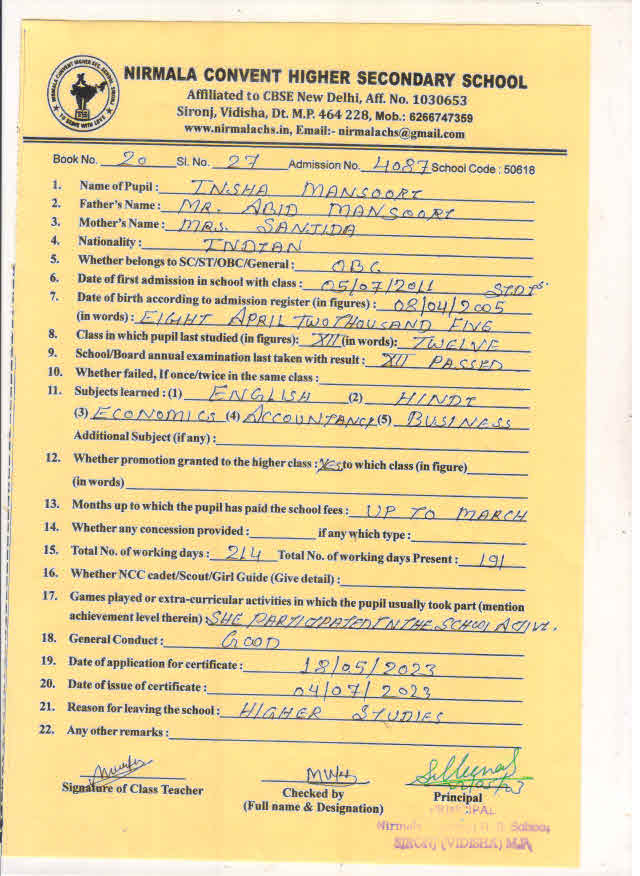 NIRMALA CONVENT HIGHER SEC. SCHOOL, SIRONJ
TO SERVE WITH LOVE
NIRMALA CONVENT HIGHER SECONDARY SCHOOL
Affiliated to CBSE New Delhi, Aff. No. 1030653
Sironj, Vidisha, Dt. M.P. 464 228, Mob.: 6266747359
www.nirmalachs.in, Email:- nirmalachs@gmail.com
Book No. 20 Sl. No. 27 Admission No. 4087 School Code : 50618
1. Name of Pupil : INSHA MANSOORI
2. Father's Name : MR. ABID MANSOORI
3. Mother's Name : MRS. SANJIDA
4. Nationality : INDIAN
5. Whether belongs to SC/ST/OBC/General : OBC
6. Date of first admission in school with class : 05/07/2011
7. Date of birth according to admission register (in figures) : 08/04/2005
(in words) : EIGHT APRIL TWO THOUSAND FIVE
8. Class in which pupil last studied (in figures): XII (in words): TWELVE
9. School/Board annual examination last taken with result : XII PASSED
10. Whether failed, If once/twice in the same class :
11. Subjects learned : (1) ENGLISH (2) HINDI
(3) ECONOMICS (4) ACCOUNTANCY (5) BUSINESS
Additional Subject (if any) :
12. Whether promotion granted to the higher class : Yes to which class (in figure)
(in words)
13. Months up to which the pupil has paid the school fees : UP TO MARCH
14. Whether any concession provided : if any which type :
15. Total No. of working days : 214 Total No. of working days Present : 191
16. Whether NCC cadet/Scout/Girl Guide (Give detail) :
17. Games played or extra-curricular activities in which the pupil usually took part (mention
achievement level therein) : SHE PARTICIPATED IN THE SCHOOL ACTIVI.
18. General Conduct : GOOD
19. Date of application for certificate : 18/05/2023
20. Date of issue of certificate : 04/07/2023
21. Reason for leaving the school : HIGHER STUDIES
22. Any other remarks :
Signature of Class Teacher
Checked by
(Full name & Designation)
Principal
PRINCIPAL
Nirmala H. S. School
SIRONJ (VIDISHA) M.P.